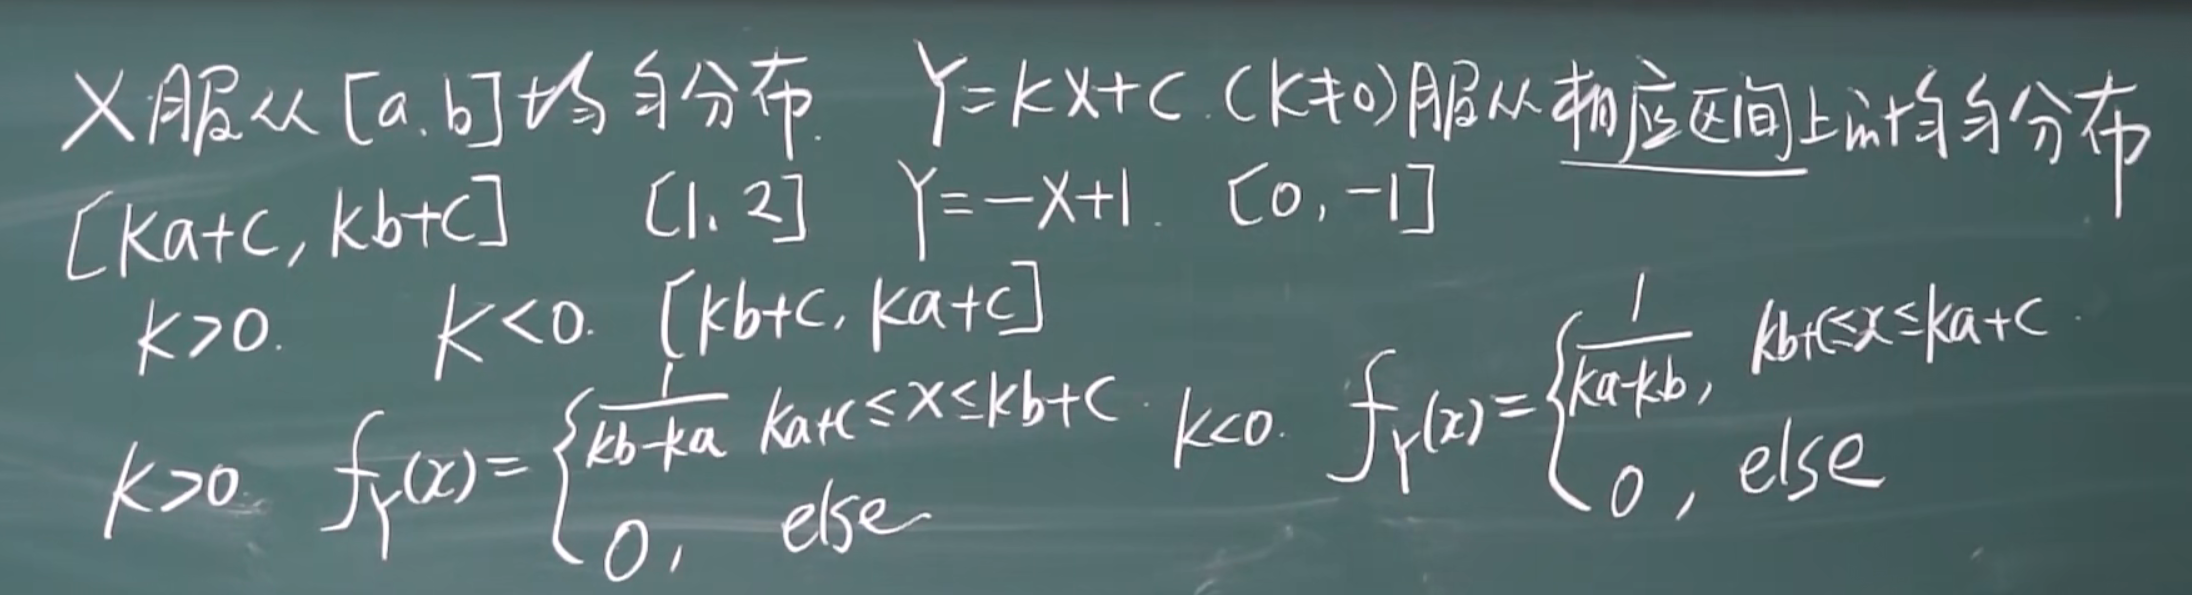 X服从[a,b]均匀分布. Y=kX+c.(k≠0)服从相应区间上的均匀分布
[ka+c, kb+c] [1,2] Y=-X+1. [0,-1]
k>0. k<0. [kb+c, ka+c]
k>0. f_Y(x)={1/(kb-ka) ka+c≤x≤kb+c. 0, else
k<0. f_Y(x)={1/(ka-kb), kb+c≤x≤ka+c. 0, else